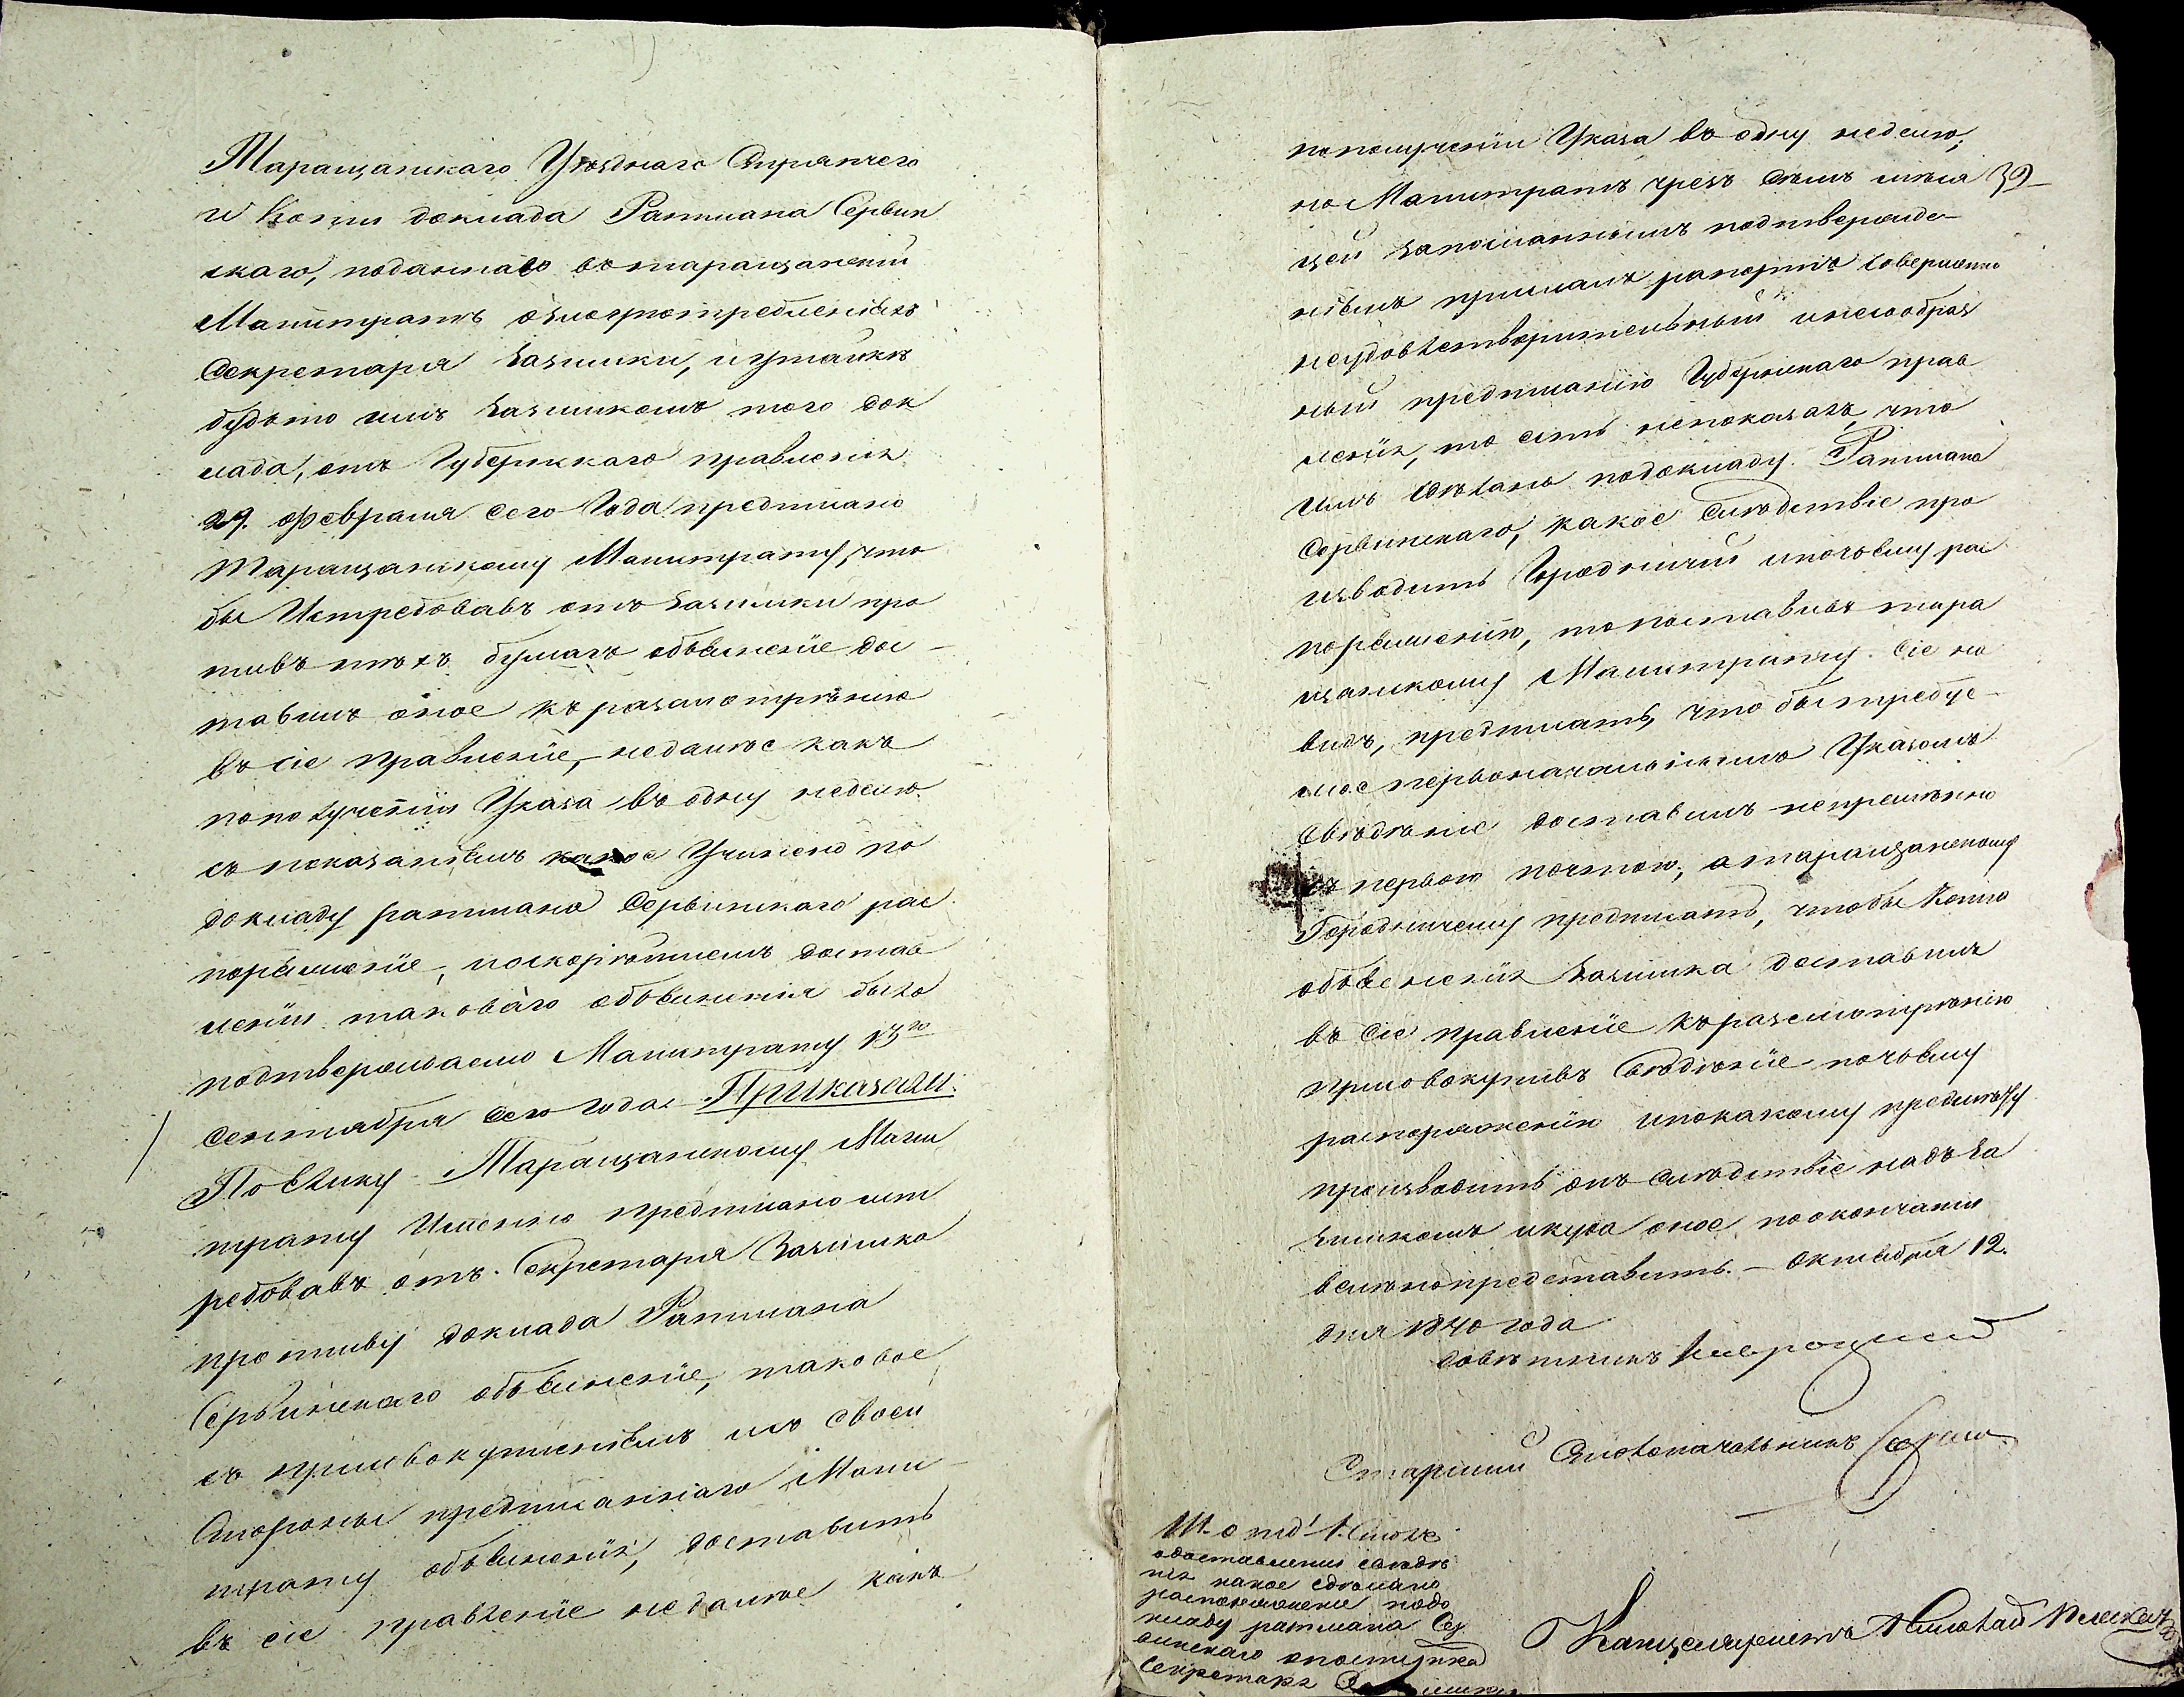 Таращанскаго Уѣзднаго Стряпчего
и Копіи доклада Ратмана Сервин
скаго, поданнаво въ таращанскій
Магистратъ озлоупотребленіяхъ
Секретаря Базилики, и утайкѣ
будьто имъ Базиликомъ того док
лада, отъ Губернскаго правленія
29. февраля сего Года предписано
Таращанскому Магистрату, что
бы Истребовавъ отъ Базилики про
тивъ тѣхъ бумагъ объясненіе дос-
тавилъ оное къ разсмотрѣнію
въ сіе правленіе, недалѣе какъ
пополученіи Указа въ одну неделю
съ показаніемъ какое Учинено по
докладу ратмана Сервинскаго рас
поряженіе, искорѣйшемъ достав
леніи таковаго объясненія было
подтверждаемо Магистрату 13го
Сентября сего года. Приказали:
Поелику Таращанскому Маги
трату Именно предписано ист
ребовавъ отъ Секретаря Базилика
противу доклада Ратмана
Сервинскаго объясненіе, таковое
съ присовокупленіемъ изъ своей
Стороны предписаннаго Маги-
трату объясненія, доставить
въ сіе правленіе недалѣе какъ
пополученіи Указа въ одну неделю,
но Магистратъ чрезъ семь мѣся
39
цей запосланнымъ подтвержде-
ніемъ прислалъ рапортъ совершенно
неудовлетворительный инесообраз
ный предписанію Губернскаго прав
ленія, то есть непоказалъ, что
имъ сдѣлано подокладу Ратмана
Сервинскаго, какое Слѣдствіе про
изводитъ Городничій ипочьему рас
поряженію, то поставивъ тара
щанскому Магистрату сіе на
видъ, предписать, что бы требуе-
мое первоначальнымъ Указомъ
Свѣдѣніе доставилъ непремѣнно
съ первою почтою, а таращанскому
Городничему предписать, чтобы Копію
объясненія Базилика доставилъ
въ Сіе правленіе къ разсмотрѣнію
присовокупивъ Свѣдѣніе почьему
распоряженію ипокакому предмѣту
производитъ онъ слѣдствіе надъ Ба
зиликомъ икуда оное поокончаніи
велѣно представить. - Октября 12.
дня 1840 года
Совѣтникъ
Старшій Столоначальникъ
III. отд. 1. Столъ
одоставленіи свѣдѣ
нія какое сдѣлано
распоряженіе подо
кладу ратмана Сер
винскаго
Секретаря Базилики
Канцеляристъ Николай